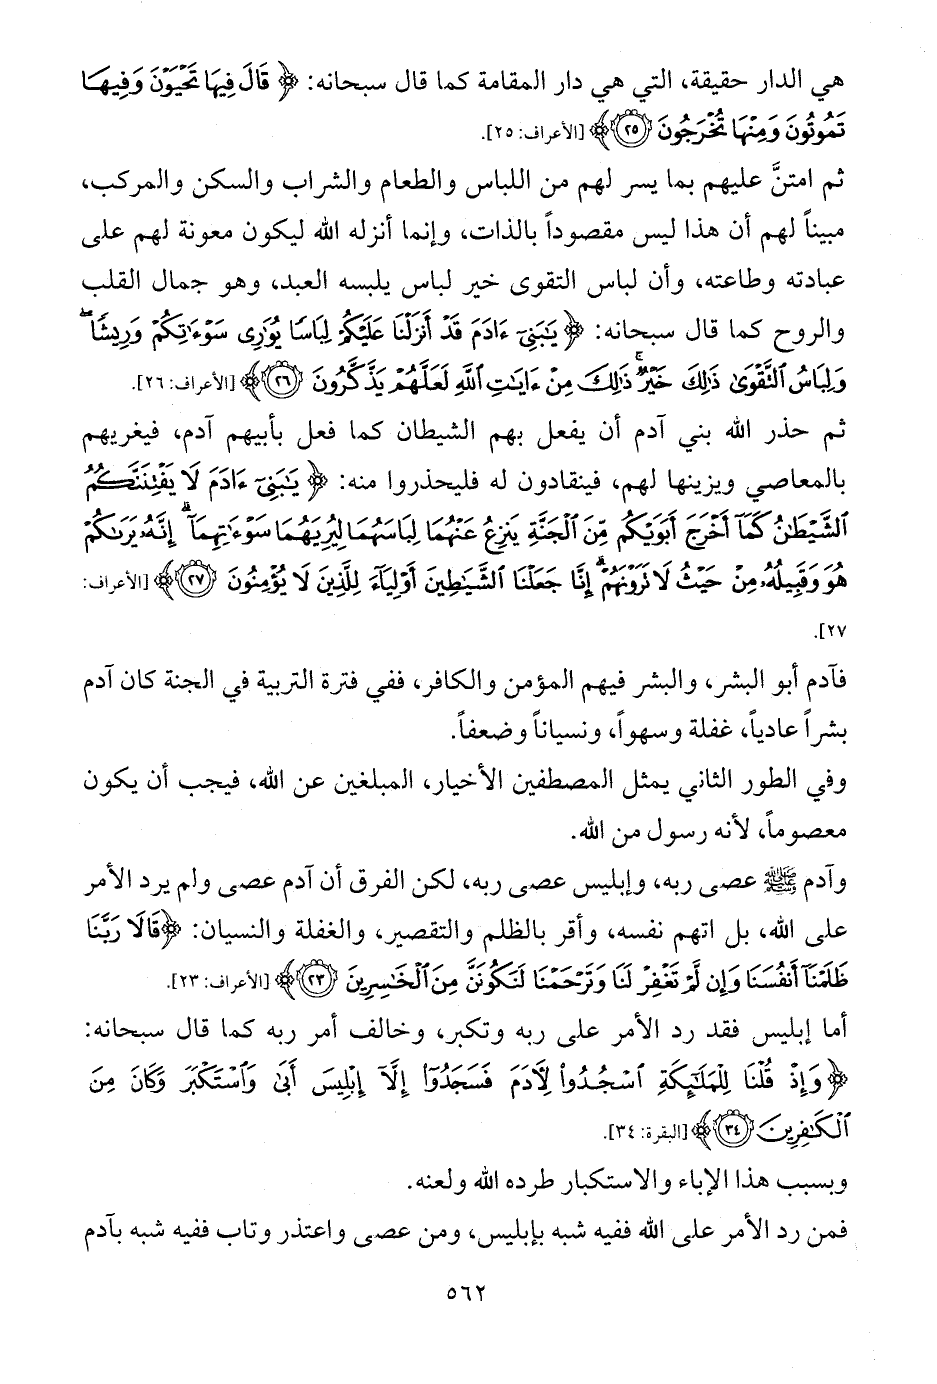 هي الدار حقيقة، التي هي دار المقامة كما قال سبحانه: ﴿ قَالَ فِيهَا تَحْيَوْنَ وَفِيهَا
تَمُوتُونَ وَمِنْهَا تُخْرَجُونَ ٢٥ ﴾ [الأعراف: ٢٥].
ثم امتنَّ عليهم بما يسر لهم من اللباس والطعام والشراب والسكن والمركب،
مبيناً لهم أن هذا ليس مقصوداً بالذات، وإنما أنزله الله ليكون معونة لهم على
عبادته وطاعته، وأن لباس التقوى خير لباس يلبسه العبد، وهو جمال القلب
والروح كما قال سبحانه: ﴿ يَٰبَنِىٓ ءَادَمَ قَدْ أَنزَلْنَا عَلَيْكُمْ لِبَاسًا يُوَٰرِى سَوْءَٰتِكُمْ وَرِيشًا ۖ
وَلِبَاسُ ٱلتَّقْوَىٰ ذَٰلِكَ خَيْرٌ ۚ ذَٰلِكَ مِنْ ءَايَٰتِ ٱللَّهِ لَعَلَّهُمْ يَذَّكَّرُونَ ٢٦ ﴾ [الأعراف: ٢٦].
ثم حذر الله بني آدم أن يفعل بهم الشيطان كما فعل بأبيهم آدم، فيغريهم
بالمعاصي ويزينها لهم، فينقادون له فليحذروا منه: ﴿ يَٰبَنِىٓ ءَادَمَ لَا يَفْتِنَنَّكُمُ
ٱلشَّيْطَٰنُ كَمَآ أَخْرَجَ أَبَوَيْكُم مِّنَ ٱلْجَنَّةِ يَنزِعُ عَنْهُمَا لِبَاسَهُمَا لِيُرِيَهُمَا سَوْءَٰتِهِمَآ ۗ إِنَّهُۥ يَرَىٰكُمْ
هُوَ وَقَبِيلُهُۥ مِنْ حَيْثُ لَا تَرَوْنَهُمْ ۗ إِنَّا جَعَلْنَا ٱلشَّيَٰطِينَ أَوْلِيَآءَ لِلَّذِينَ لَا يُؤْمِنُونَ ٢٧ ﴾ [الأعراف:
٢٧].
فآدم أبو البشر، والبشر فيهم المؤمن والكافر، ففي فترة التربية في الجنة كان آدم
بشراً عادياً، غفلة وسهواً، ونسياناً وضعفاً.
وفي الطور الثاني يمثل المصطفين الأخيار، المبلغين عن الله، فيجب أن يكون
معصوماً، لأنه رسول من الله.
وآدم ﷺ عصى ربه، وإبليس عصى ربه، لكن الفرق أن آدم عصى ولم يرد الأمر
على الله، بل اتهم نفسه، وأقر بالظلم والتقصير، والغفلة والنسيان: ﴿ قَالَا رَبَّنَا
ظَلَمْنَآ أَنفُسَنَا وَإِن لَّمْ تَغْفِرْ لَنَا وَتَرْحَمْنَا لَنَكُونَنَّ مِنَ ٱلْخَٰسِرِينَ ٢٣ ﴾ [الأعراف: ٢٣].
أما إبليس فقد رد الأمر على ربه وتكبر، وخالف أمر ربه كما قال سبحانه:
﴿ وَإِذْ قُلْنَا لِلْمَلَٰٓئِكَةِ ٱسْجُدُوا۟ لِءَادَمَ فَسَجَدُوٓا۟ إِلَّآ إِبْلِيسَ أَبَىٰ وَٱسْتَكْبَرَ وَكَانَ مِنَ
ٱلْكَٰفِرِينَ ٣٤ ﴾ [البقرة: ٣٤].
وبسبب هذا الإباء والاستكبار طرده الله ولعنه.
فمن رد الأمر على الله ففيه شبه بإبليس، ومن عصى واعتذر وتاب ففيه شبه بآدم
٥٦٢